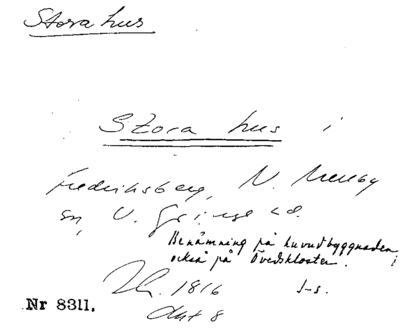 Stora hus
Stora hus i
Fredriksberg, N. Mellby
sn, V. Göinge hd.
Benämning på huvudbyggnaden,
också på Övedskloster.
1816 J-s.
Nr 8311.